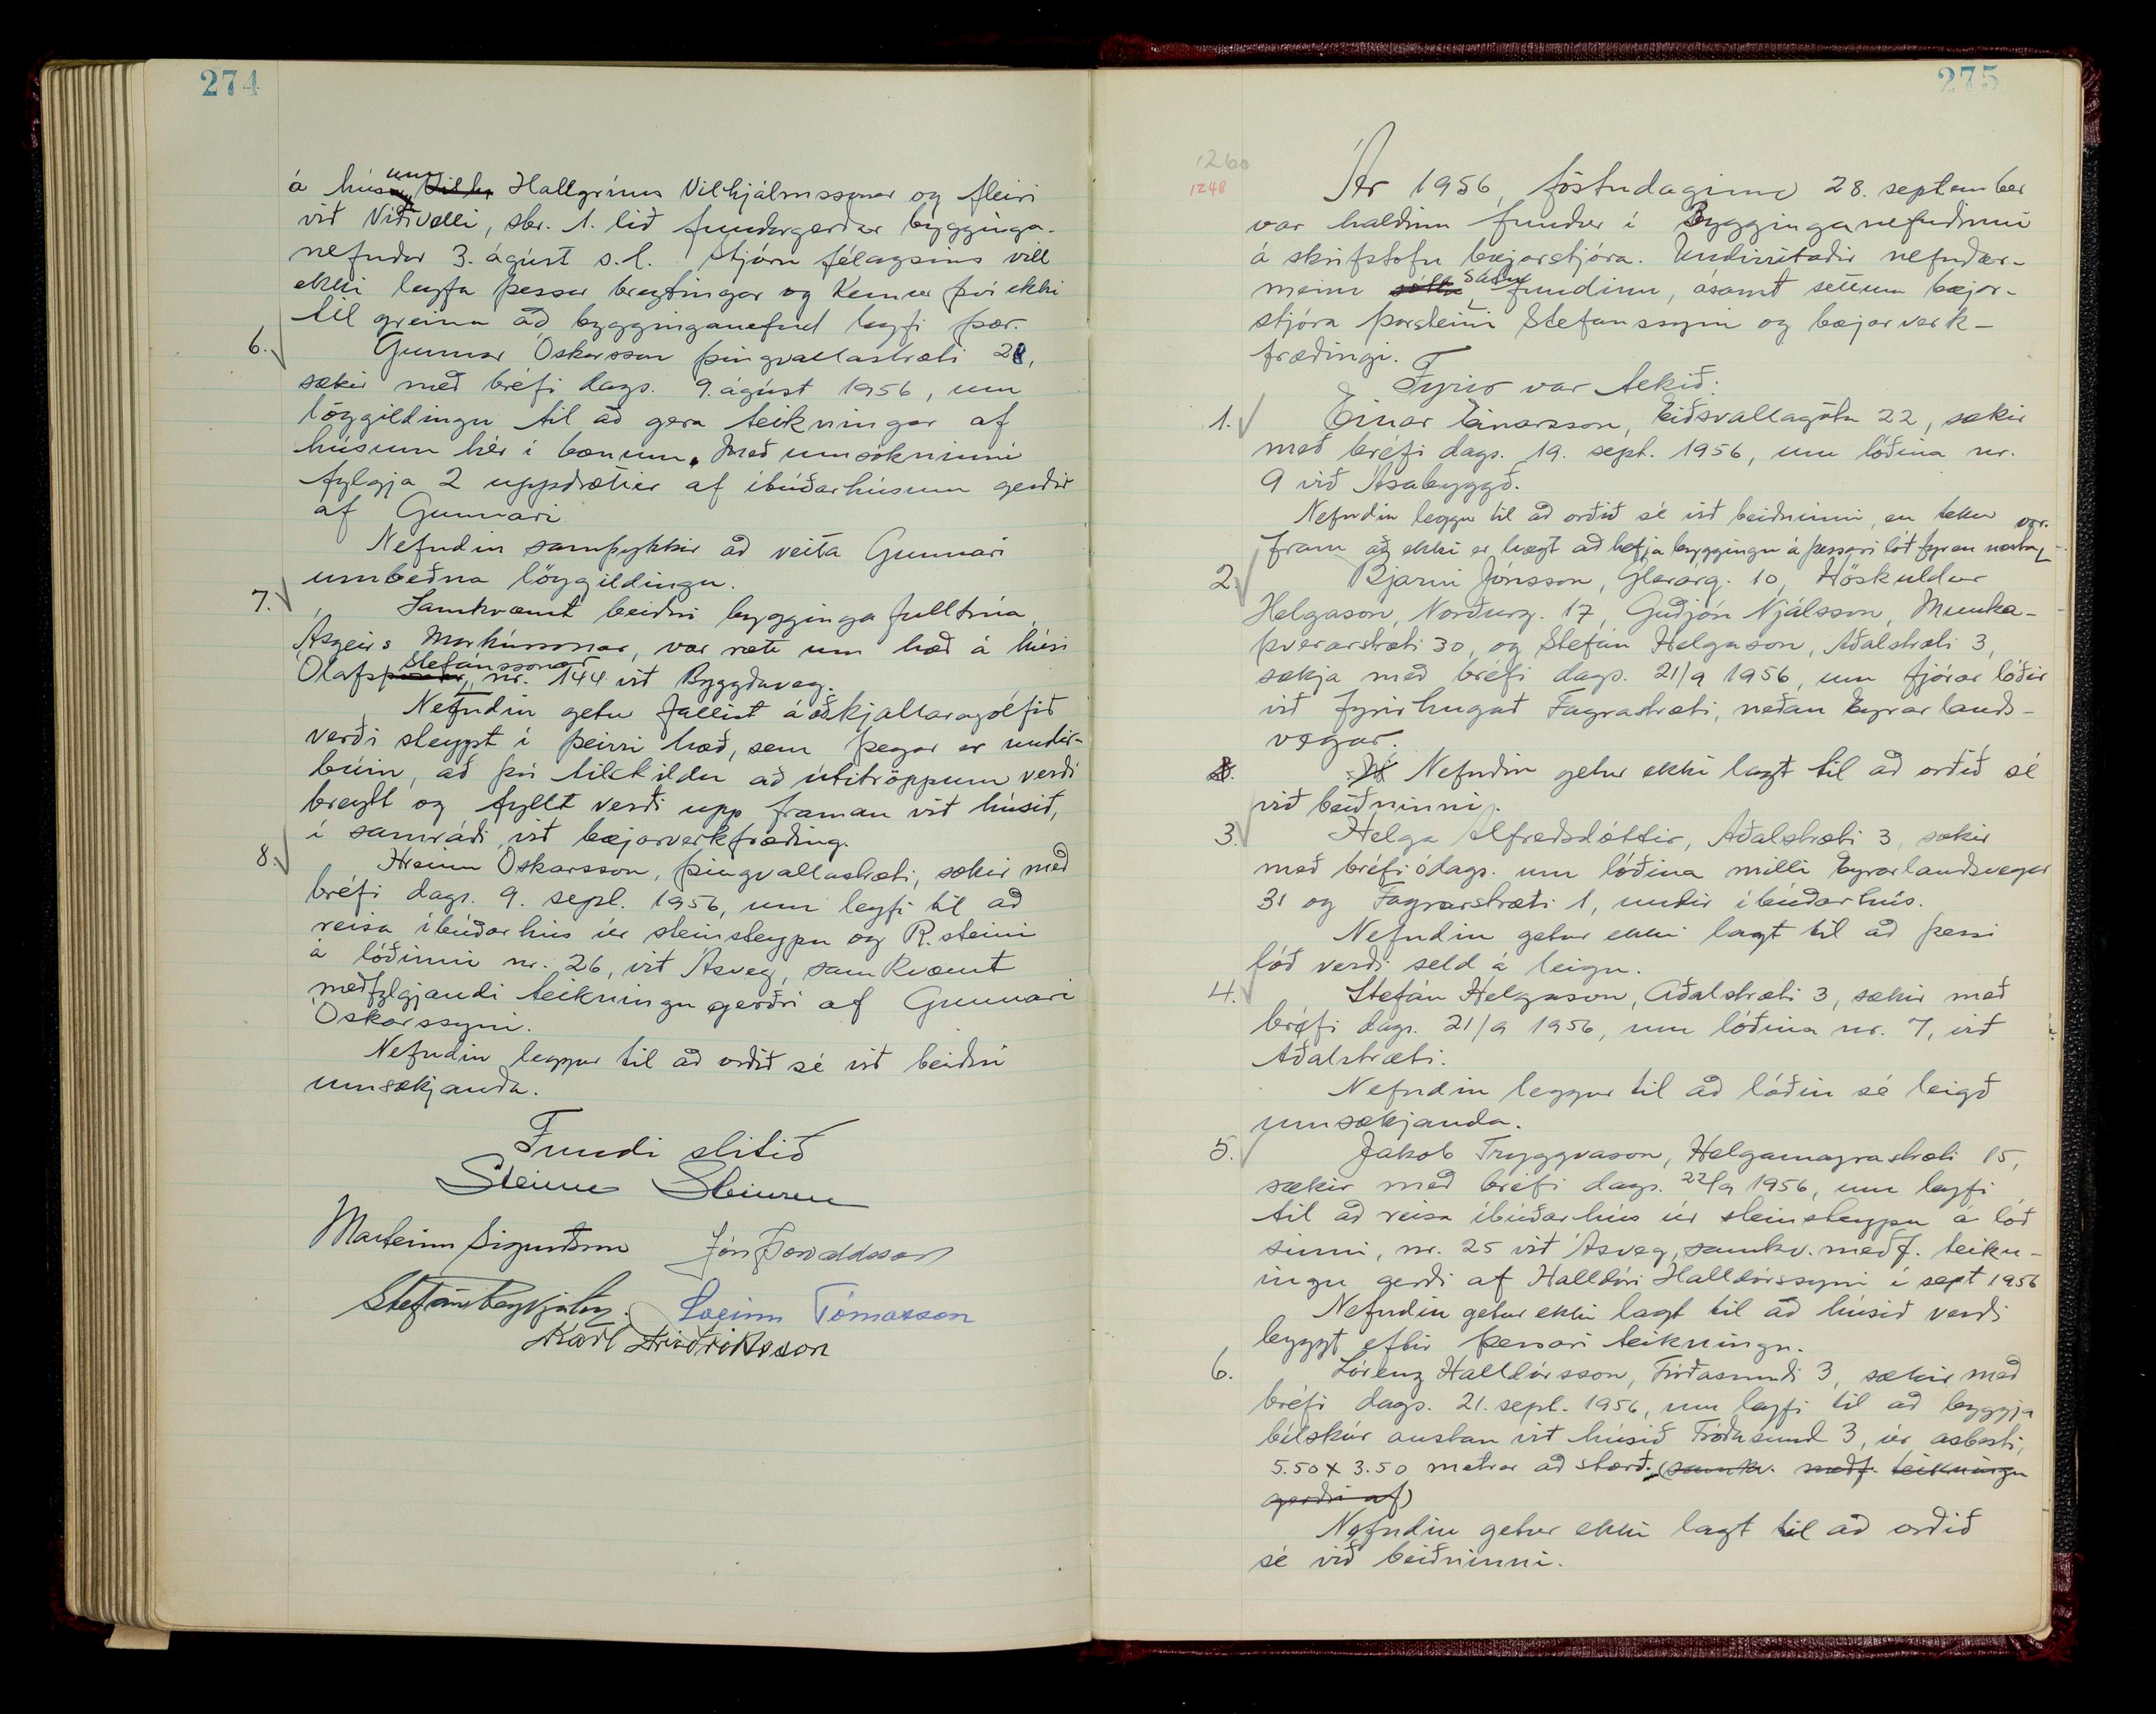 274
á húsum Hallgríms Vilhjálmssonar og fleiri
við Víðivelli, sbr. 1. lið fundargerðar bygginga-
nefndar 3. ágúst s.l. Stjórn félagsins vill
ekki leyfa þessar breytingar og kemur því ekki
til greina að bygginganefnd leyfi þær.
6. Gunnar Óskarsson Þingvallastræti 28,
sækir með bréfi dags. 9. ágúst 1956, um
löggildingu til að gera teikningar af
húsum hér í bænum. Með umsókninni
fylgja 2 uppdrættir af íbúðarhúsum gerðir
af Gunnari
Nefndin samþykkir að veita Gunnari
umbeðna löggildingu.
7. Samkvæmt beiðni byggingafulltrúa,
Ásgeirs Markússonar, var rætt um hæð á húsi
Ólafs Stefánssonar, nr. 144 við Byggðaveg.
Nefndin getur fallist á að kjallaragólfið
verði steypt í þeirri hæð, sem þegar er undir-
búin, að því tilskildu að útitröppum verði
breytt og fyllt verði upp framan við húsið,
í samráði við bæjarverkfræðing.
8. Hreinn Óskarsson, Þingvallastræti, sækir með
bréfi dags. 9. sept. 1956, um leyfi til að
reisa íbúðarhús úr steinsteypu og R. steini
á lóðinni nr. 26, við Ásveg, samkvæmt
meðfylgjandi teikningu gerðri af Gunnari
Óskarssyni.
Nefndin leggur til að orðið sé við beiðni
umsækjanda.
Fundi slitið
Steinn Steinsen
Marteinn Sigurðsson Jón Þorvaldsson
Stefán Reykjalín. Sveinn Tómasson
Karl Friðriksson
275
1260
1248
Ár 1956, föstudaginn 28. september
var haldinn fundur í Bygginganefndinni
á skrifstofu bæjarstjóra. Undirritaðir nefndar-
menn sátu fundinn, ásamt settum bæjar-
stjóra Þorsteini Stefánssyni og bæjarverk-
fræðingi.
Fyrir var tekið:
1. Einar Einarsson, Eiðsvallagötu 22, sækir
með bréfi dags. 19. sept. 1956, um lóðina nr.
9 við Ásabyggð.
Nefndin leggur til að orðið sé við beiðninni, en tekur
fram að ekki er hægt að hefja byggingu á þessari lóð fyr en næsta vor.
2. Bjarni Jónsson, Glerárg. 10, Höskuldur
Helgason, Norðurg. 17, Guðjón Njálsson, Munka-
þverárstræti 30, og Stefán Helgason, Aðalstræti 3,
sækja með bréfi dags. 21/9 1956, um fjórar lóðir
við fyrirhugað Fagrastræti, neðan Eyrarlands-
vegar.
Nefndin getur ekki lagt til að orðið sé
við beiðninni.
3. Helga Alfreðsdóttir, Aðalstræti 3, sækir
með bréfi ódags. um lóðina milli Eyrarlandsvegar
31 og Fagrastræti 1, undir íbúðarhús.
Nefndin getur ekki lagt til að þessi
lóð verði seld á leigu.
4. Stefán Helgason, Aðalstræti 3, sækir með
bréfi dags. 21/9 1956, um lóðina nr. 7, við
Aðalstræti.
Nefndin leggur til að lóðin sé leigð
umsækjanda.
5. Jakob Tryggvason, Helgamagrastræti 15,
sækir með bréfi dags. 22/9 1956, um leyfi
til að reisa íbúðarhús úr steinsteypu á lóð
sinni, nr. 25 við Ásveg, samkv. meðf. teikn-
ingu gerði af Halldóri Halldórssyni í sept 1956
Nefndin getur ekki lagt til að húsið verði
byggt eftir þessari teikningu.
6. Lórenz Halldórsson, Fróðasundi 3, sækir með
bréfi dags. 21. sept. 1956, um leyfi til að byggja
bílskúr austan við húsið Fróðasund 3, úr asbesti,
5.50 x 3.50 metrar að stærð. (samkv. meðf. teikningu
gerðri af)
Nefndin getur ekki lagt til að orðið
sé við beiðninni.